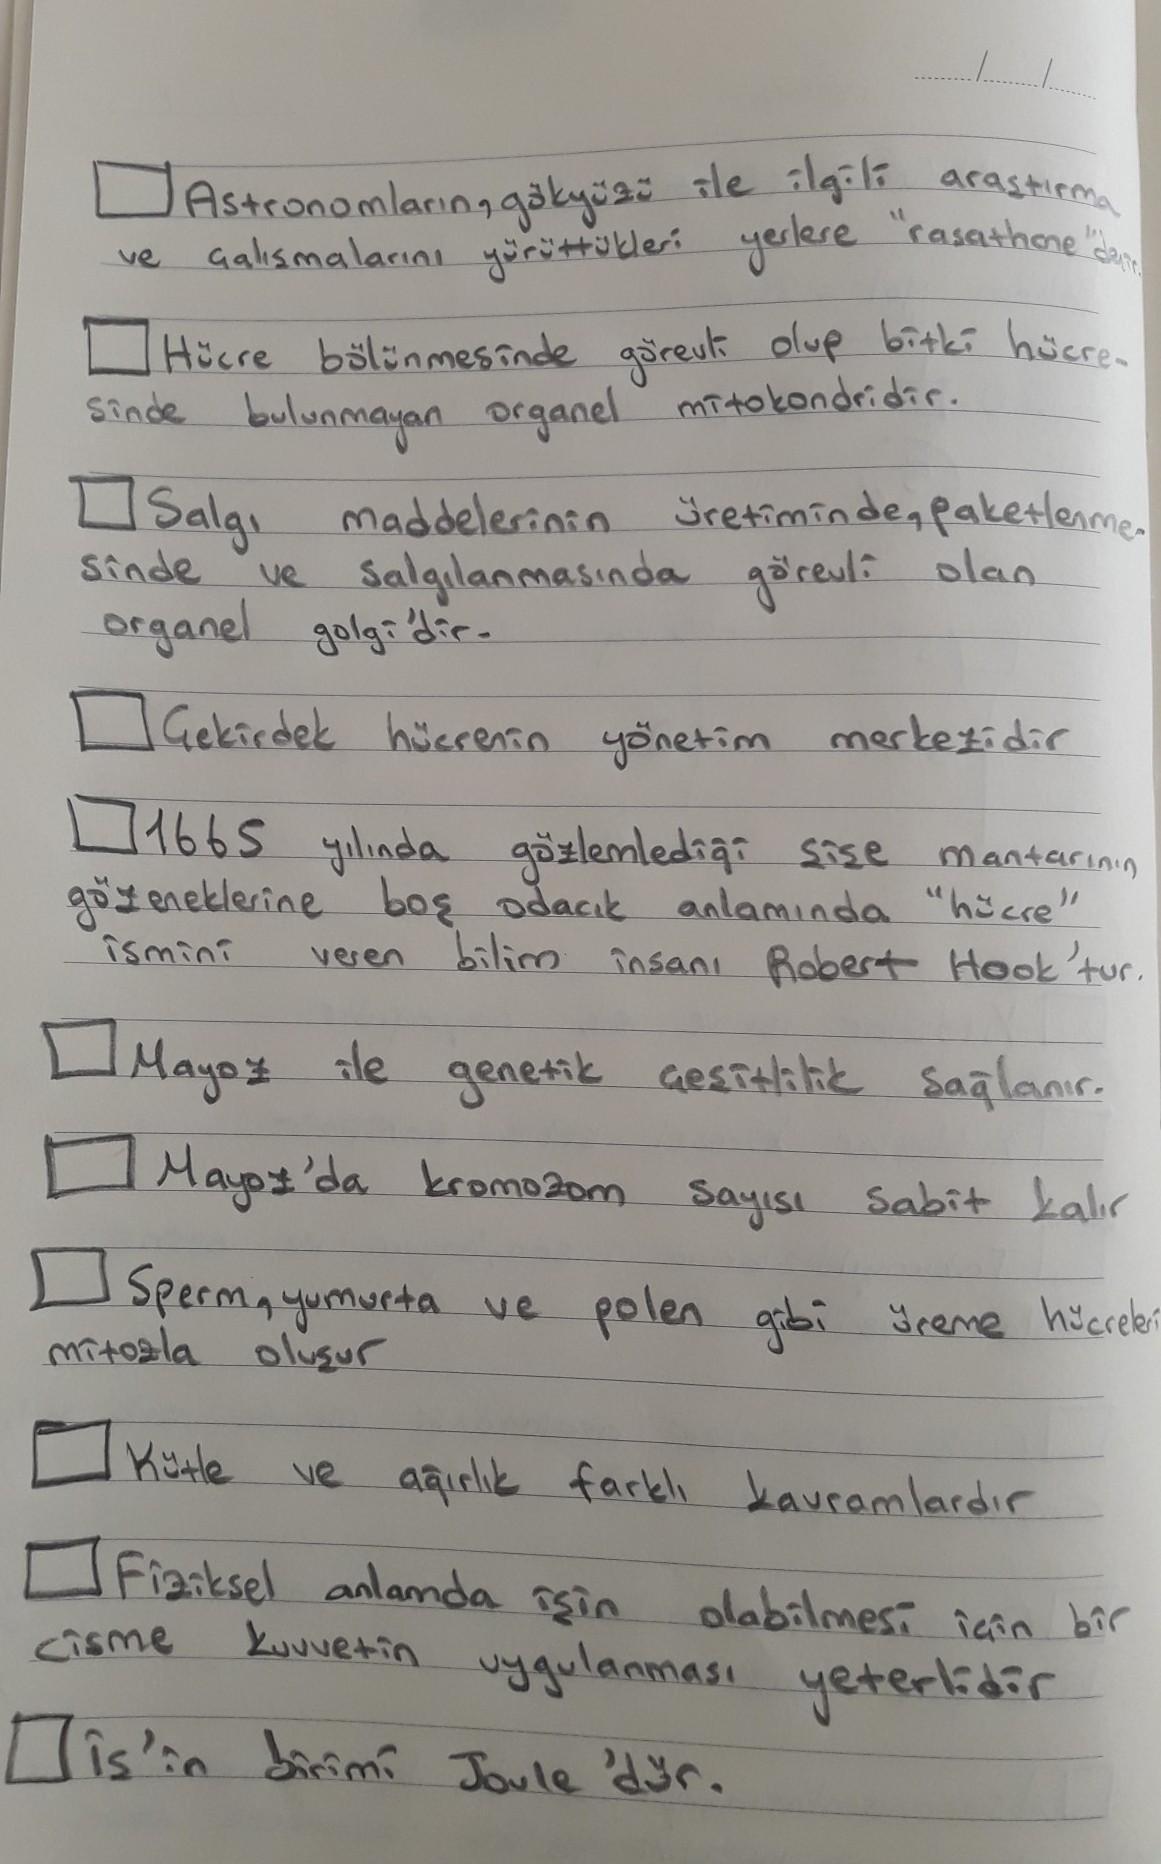 Astronomların, gökyüzü ile ilgili arastırma
ve çalısmalarını yürüttükleri yerlere "rasathane" denir.
Hücre bölünmesinde görevli olup bitki hücre-
sinde bulunmayan organel mitokondridir.
Salgı maddelerinin üretiminde, paketlenme-
sinde ve salgılanmasında görevli olan
organel golgi'dir.
Çekirdek hücrenin yönetim merkezidir
1665 yılında gözlemlediği şişe mantarının
gözeneklerine boş odacık anlamında "hücre"
ismini veren bilim insanı Robert Hook'tur.
Mayoz ile genetik çesitlilik sağlanır.
Mayoz'da kromozom sayısı sabit kalır
Sperm, yumurta ve polen gibi üreme hücreleri
mitozla oluşur
Kütle ve ağırlık farklı kavramlardır
Fiziksel anlamda işin olabilmesi için bir
cisme kuvvetin uygulanması yeterlidir
İş'in birimi Joule'dür.